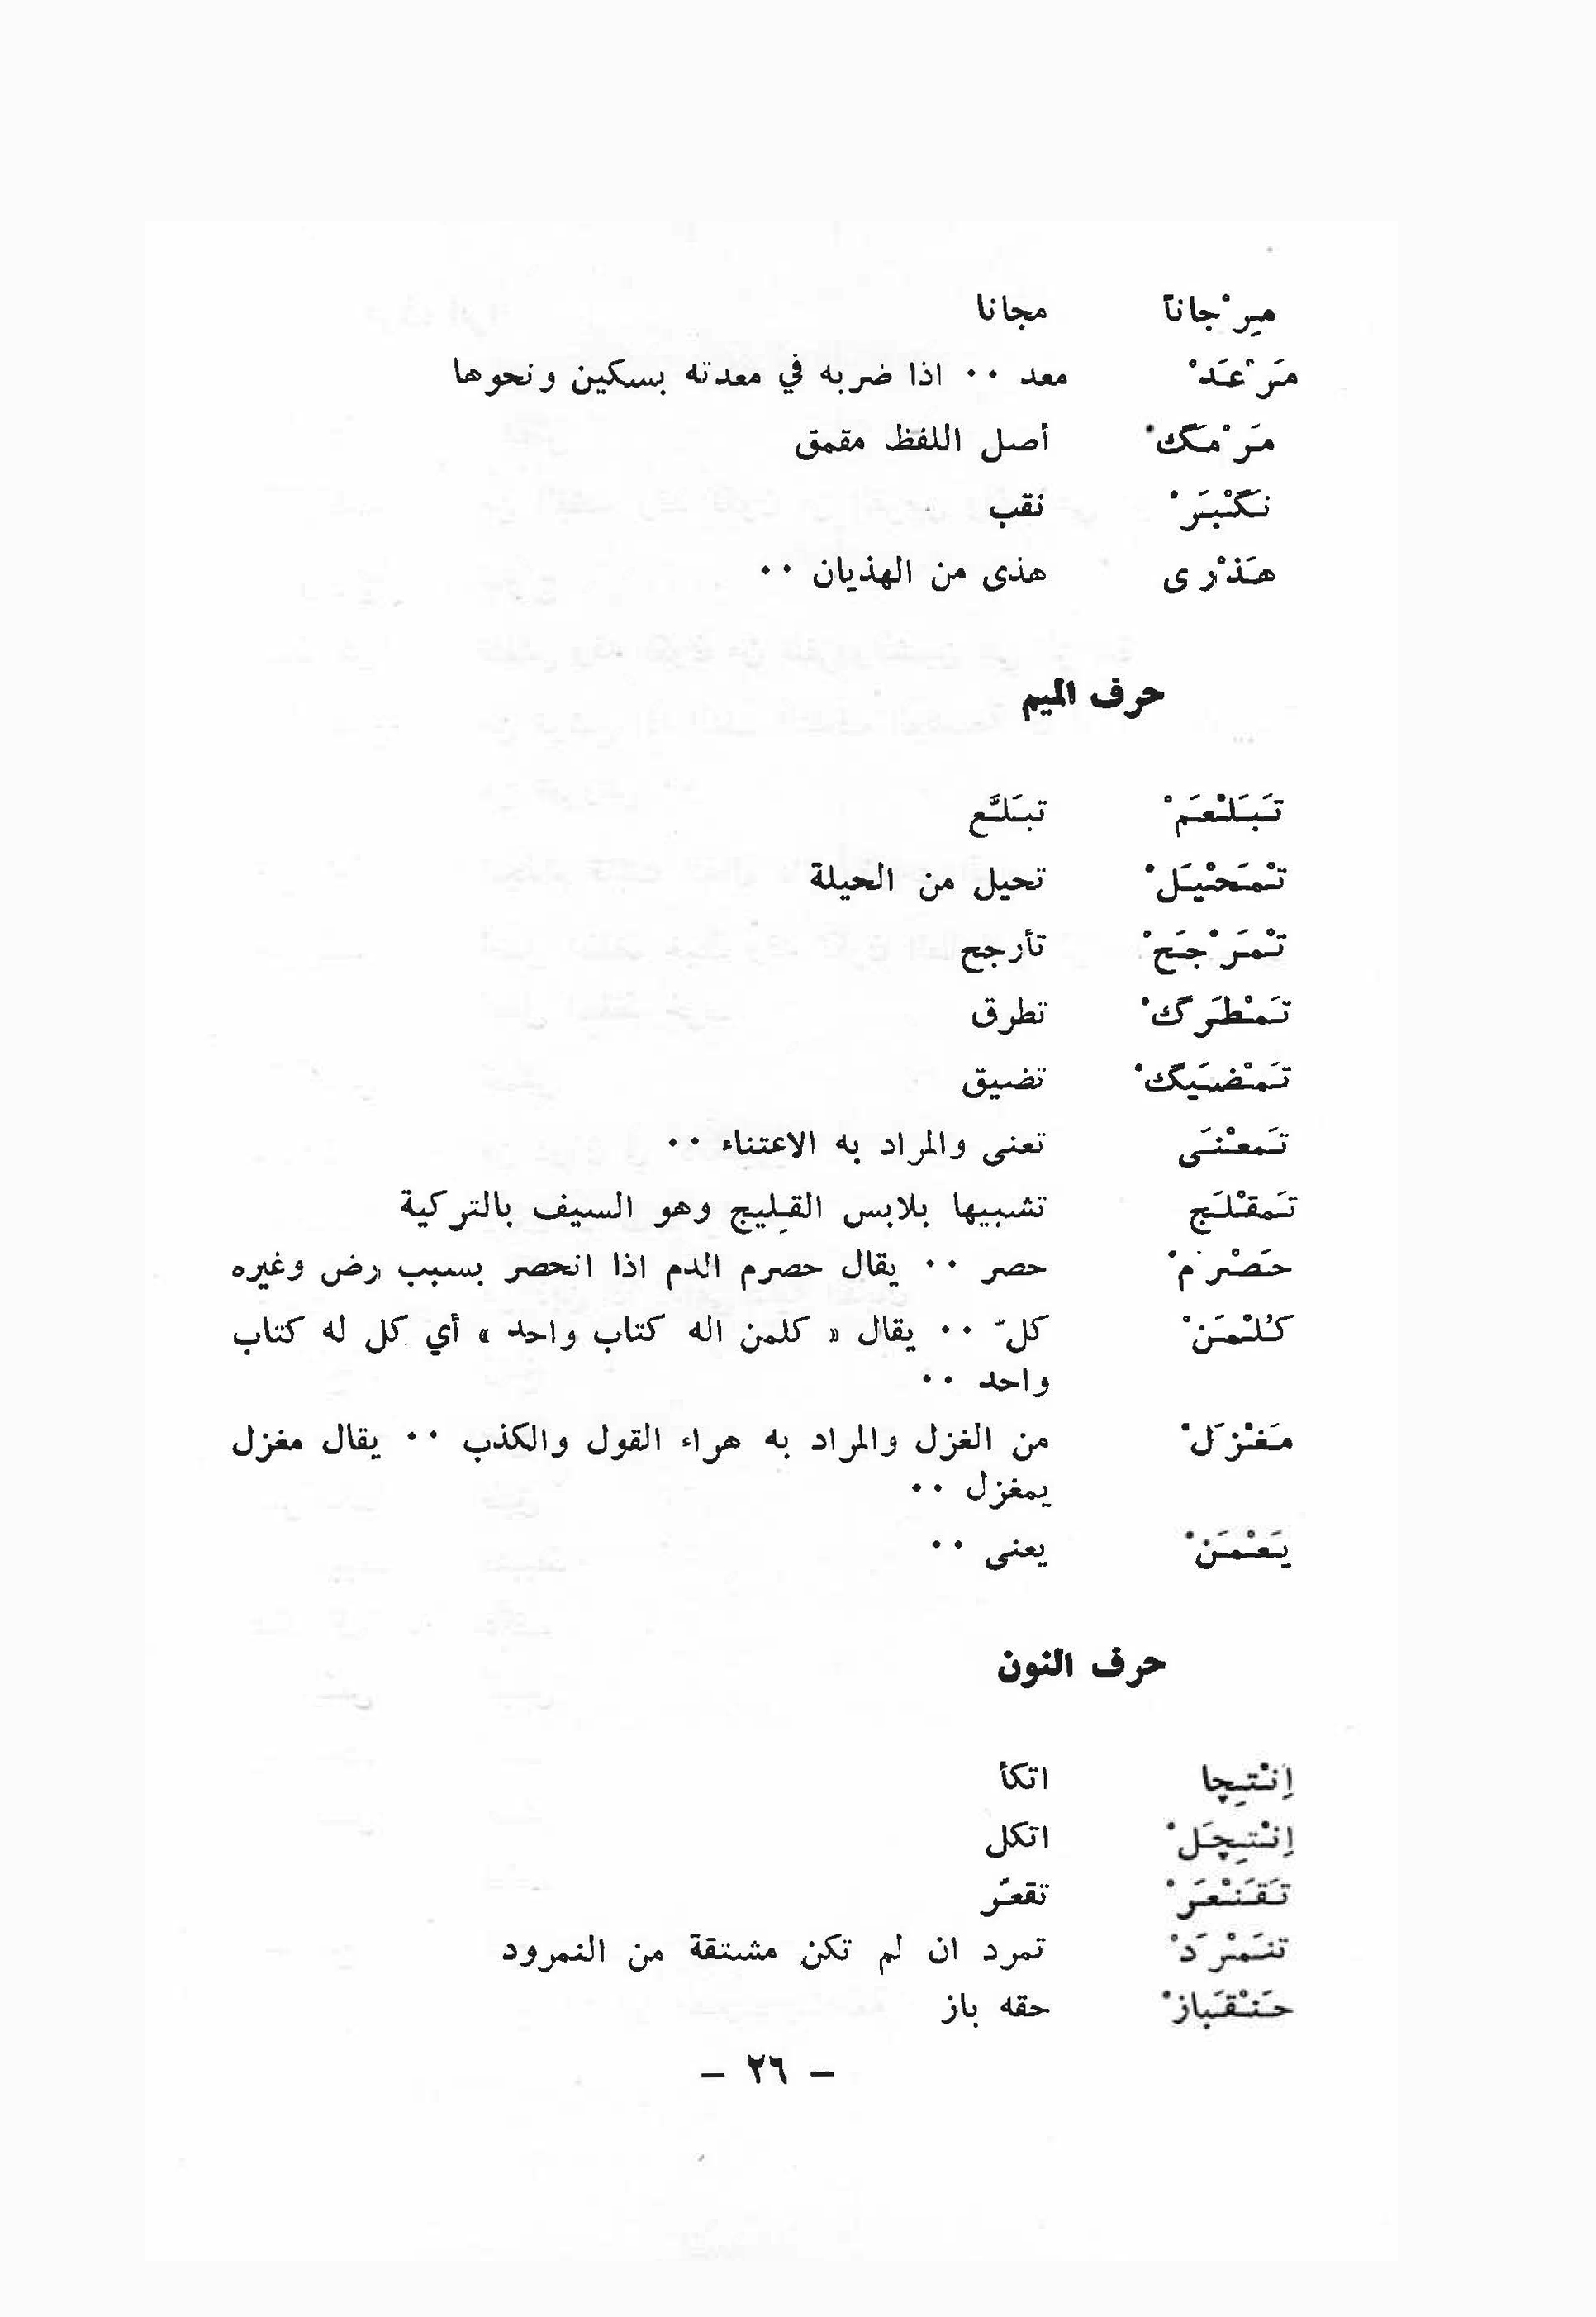 مِرْجاناً مجانا
مَرْعَدْ معد ٠٠ اذا ضربه في معدته بسكين ونحوها
مَرْمَگْ أصل اللفظ مقمق
نَگْبَرْ نقب
هَذْرى هذى من الهذيان ٠٠
حرف الميم
تَبَلْعَمْ تبَلَّع
تْمَحْيَلْ تحيل من الحيلة
تْمَرْجَحْ تأرجح
تَمْطَرَگْ تطرق
تَمْضَيَگْ تضيق
تَمعْنَى تعنى والمراد به الاعتناء ٠٠
تَمقْلَج تشبيها بلابس القِليج وهو السيف بالتركية
حَصْرَمْ حصر ٠٠ يقال حصرم الدم اذا انحصر بسبب رض وغيره
كُلْمَنْ كلّ ٠٠ يقال « كلمن اله كتاب واحد » أي كل له كتاب
واحد ٠٠
مَغْزَلْ من الغزل والمراد به هراء القول والكذب ٠٠ يقال مغزل
يمغزل ٠٠
يَعْمَنْ يعنى ٠٠
حرف النون
اِنْتِچا اتكأ
اِنْتِچَلْ اتكل
تَقَنْعَرْ تقعّر
تنَمْرَدْ تمرد ان لم تكن مشتقة من النمرود
حَنْقَبازْ حقه باز
– ٢٦ –